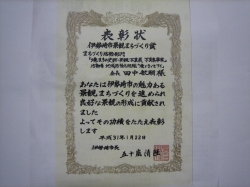 表彰状
伊勢崎市景観まちづくり賞
まちづくり活動部門
会長 田中敏朗様
あなたは伊勢崎市の魅力ある
景観まちづくりを進められ
良好な景観の形成に貢献され
ました
よってその功績をたたえ表彰
します
平成31年1月22日
伊勢崎市長
五十嵐清隆